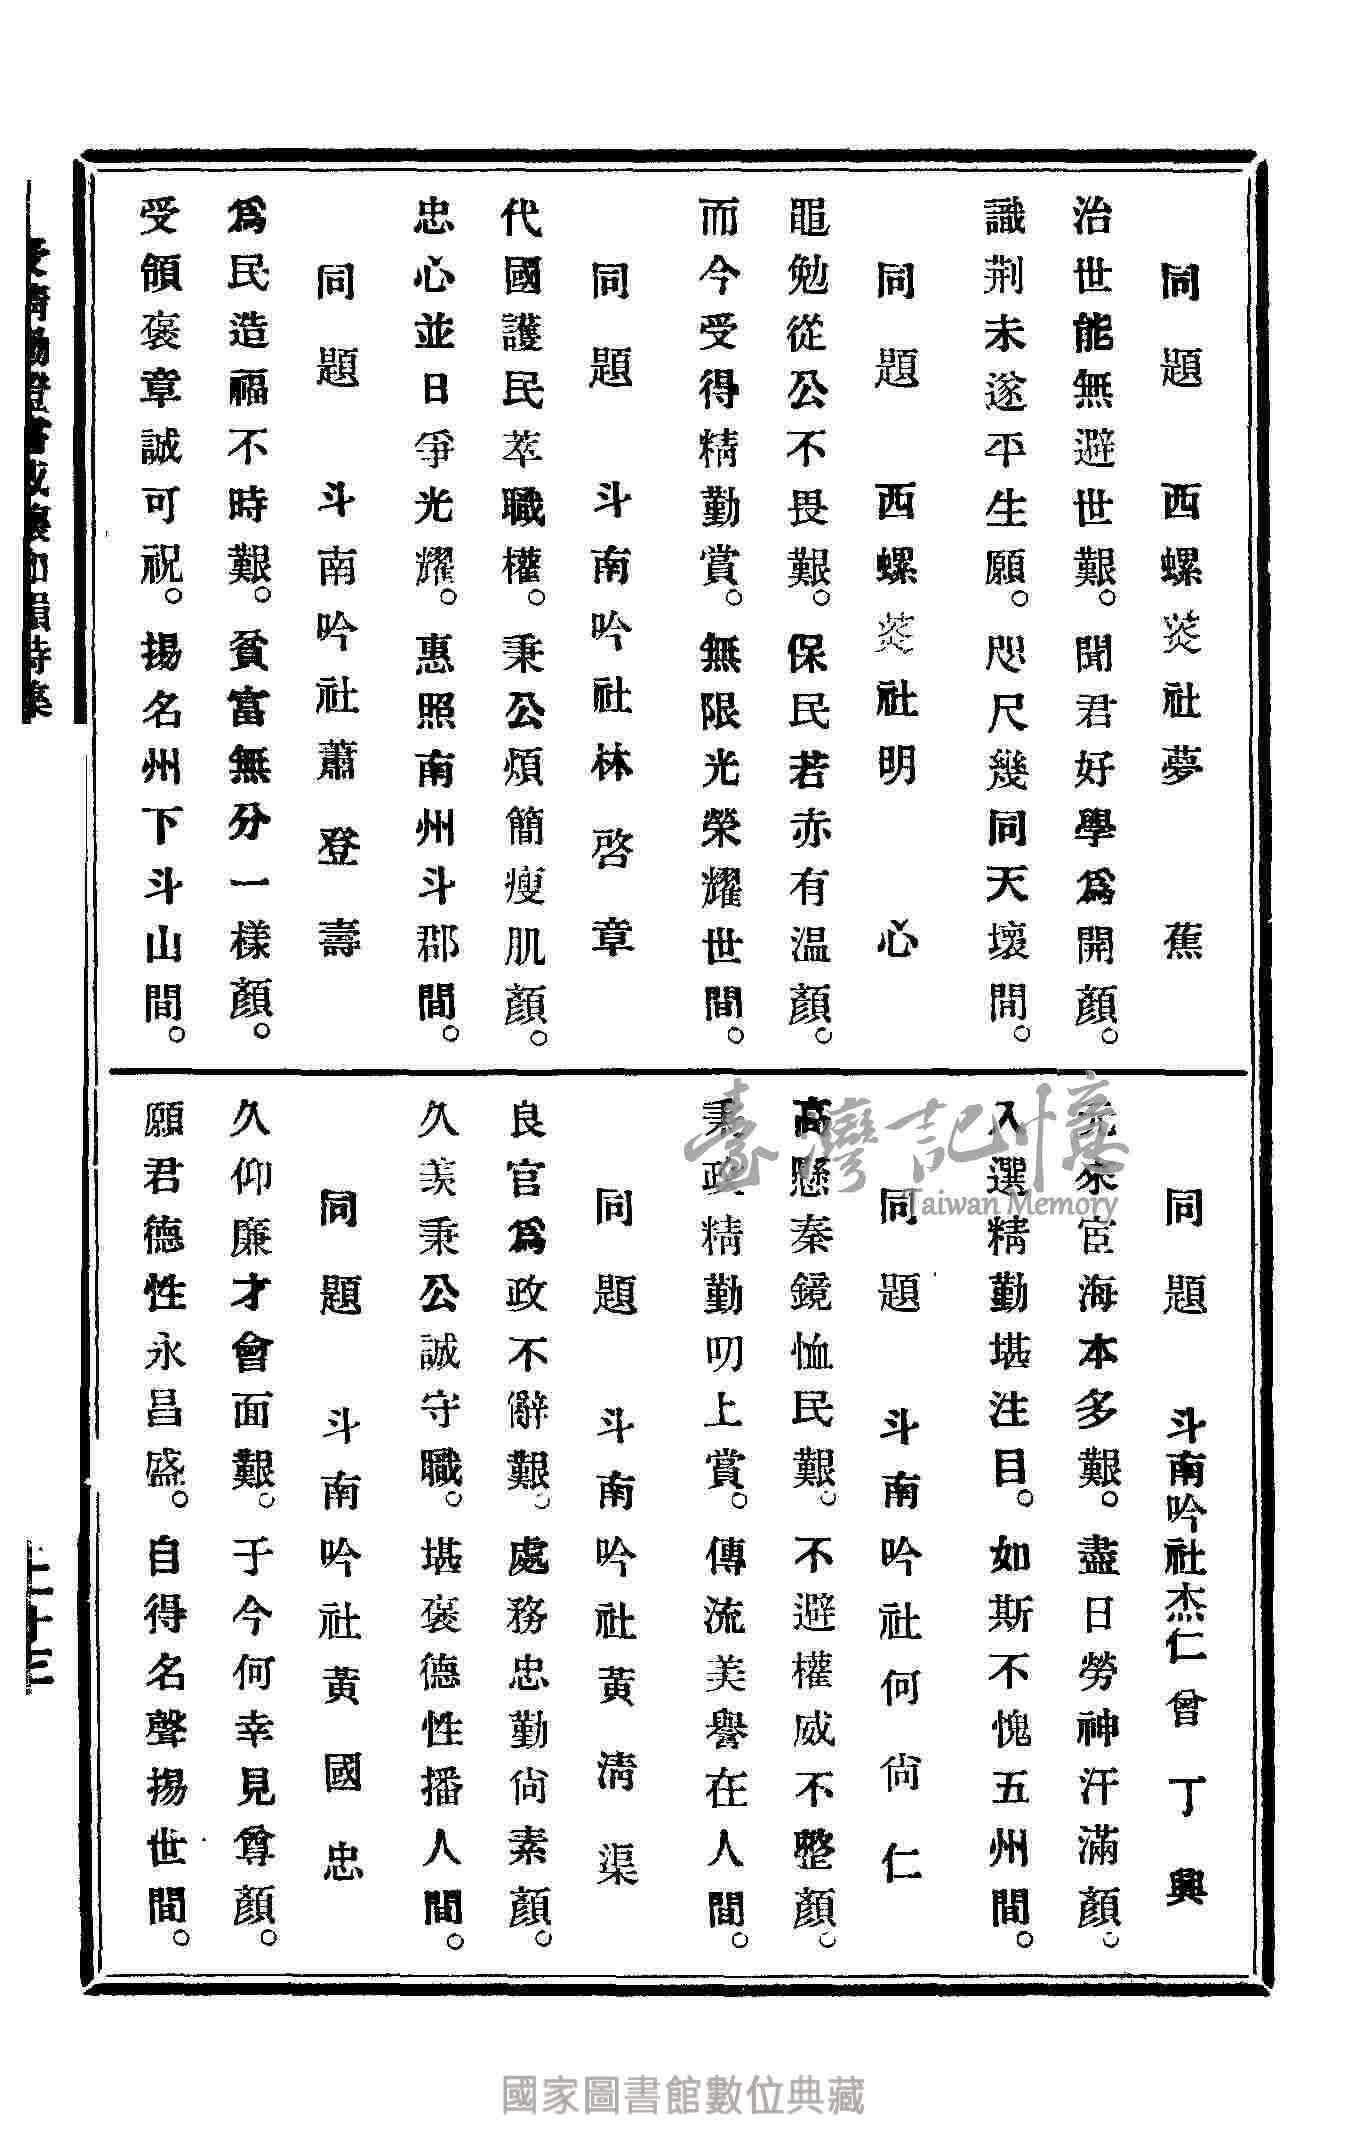 同題 西螺菼社夢蕉
治世能無避世艱。聞君好學爲開顏。
識荆未遂平生願。咫尺幾同天壤間。
同題 西螺菼社明心
黽勉從公不畏艱。保民若赤有温顏。
而今受得精勤賞。無限光榮耀世間。
同題 斗南吟社林啓章
代國護民萃職權。秉公煩簡瘦肌顏。
忠心並日爭光耀。惠照南州斗郡間。
同題 斗南吟社蕭登壽
爲民造福不時艱。貧富無分一樣顏。
受領褒章誠可祝。揚名州下斗山間。
同題 斗南吟社杰仁曾丁興
元來宦海本多艱。盡日勞神汗滿顏。
入選精勤堪注目。如斯不愧五州間。
同題 斗南吟社何尙仁
高懸秦鏡恤民艱。不避權威不整顏。
秉政精勤叨上賞。傳流美譽在人間。
同題 斗南吟社黃淸渠
良官爲政不辭艱。處務忠勤尙素顏。
久羨秉公誠守職。堪褒德性播人間。
同題 斗南吟社黃國忠
久仰廉才會面艱。于今何幸見尊顏。
願君德性永昌盛。自得名聲揚世間。
臺灣記憶
Taiwan Memory
國家圖書館數位典藏